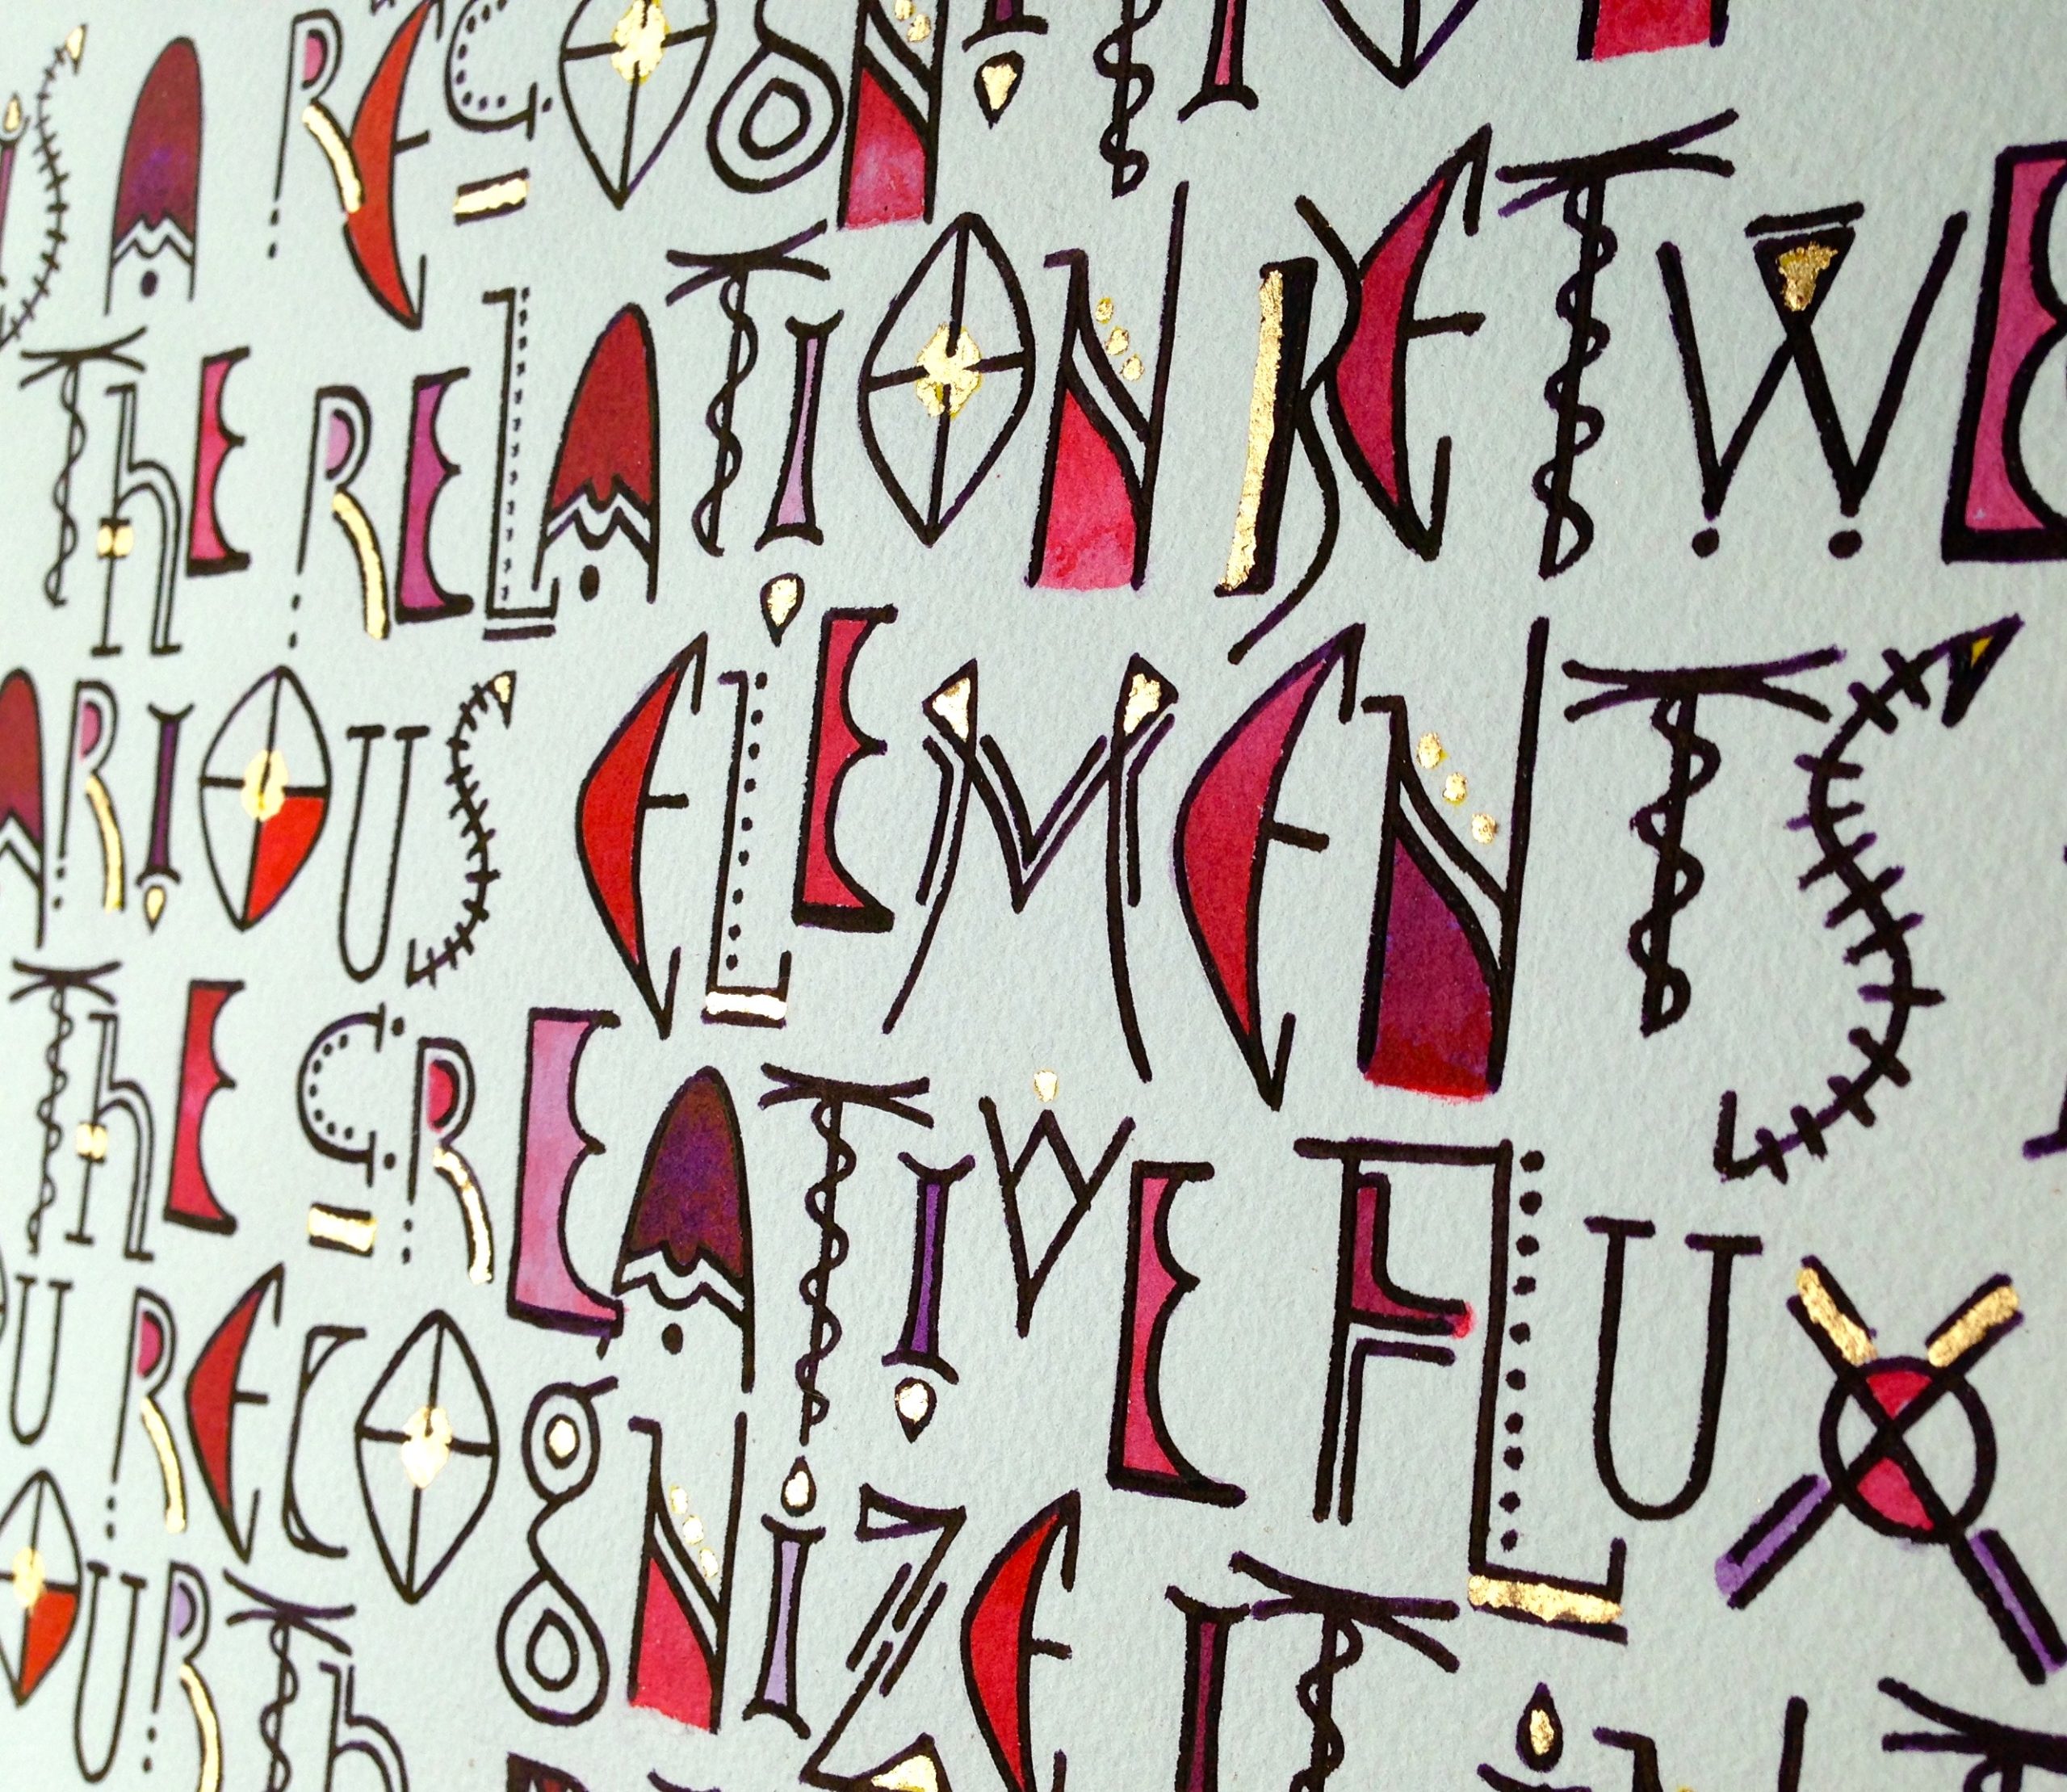 A RECOGNITION
THE RELATION BETWEE
ARIOUS ELEMENTS
THE CREATIVE FLUX
U RECOGNIZE IT
OURTH